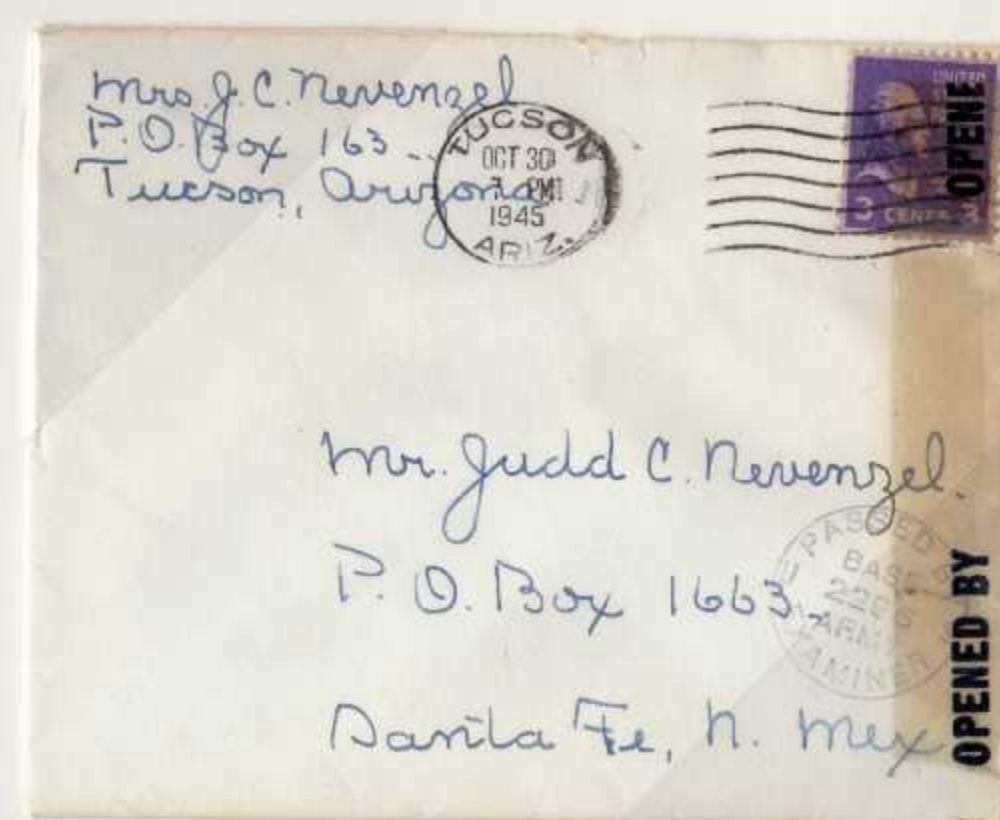 Mrs. J. C. Nevenzel
P. O. Box 163
Tucson, Arizona
TUCSON
OCT 30
PM
1945
ARIZ.
UNITED
3 CENTS 3
OPENE
Mr. Judd C. Nevenzel.
P. O. Box 1663
Santa Fe, N. Mex
PASSED
BASE
ARMY
OPENED BY